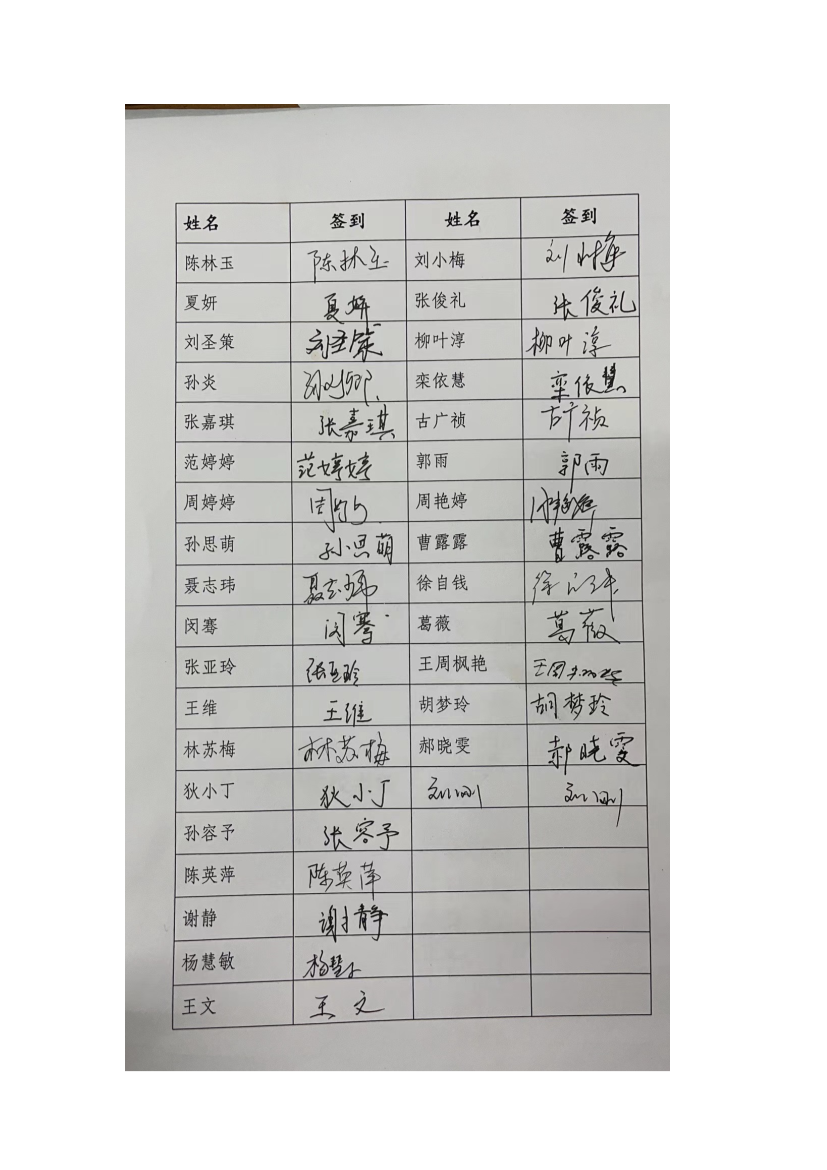 姓名 签到 姓名 签到
陈林玉 陈林玉 刘小梅 刘小梅
夏妍 夏妍 张俊礼 张俊礼
刘圣策 刘圣策 柳叶淳 柳叶淳
孙炎 栾依慧 栾依慧
张嘉琪 张嘉琪 古广祯 古广祯
范婷婷 范婷婷 郭雨 郭雨
周婷婷 周艳婷 周艳婷
孙思萌 孙思萌 曹露露 曹露露
聂志玮 聂志玮 徐自钱
闵骞 闵骞 葛薇 葛薇
张亚玲 张亚玲 王周枫艳
王维 王维 胡梦玲 胡梦玲
林苏梅 林苏梅 郝晓雯 郝晓雯
狄小丁 狄小丁
孙容予 张容予
陈英萍 陈英萍
谢静 谢静
杨慧敏
王文 王文